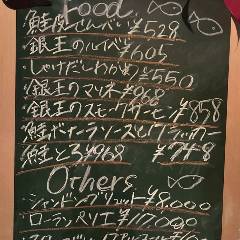 Food
鮭皮せんべい ¥528
銀王のルイベ ¥605
しゃけだしわかめ ¥550
銀王のマリネ ¥968
銀王のスモークサーモン ¥858
鮭 ソース
鮭とろ ¥968 ¥748
Others
シャンドン ブリュット ¥8,000
ローラン・ペリエ ¥17,000